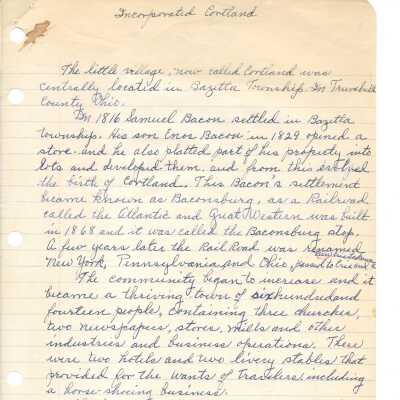 Incorporated Cortland
The little village, now called Cortland was
centrally located in Bazetta Township. In Trumbull
County Ohio.
In 1816 Samuel Bacon settled in Bazetta
Township. His son Enos Bacon in 1829 opened a
store and he also platted part of his property into
lots and developed them, and from this evolved
the birth of Cortland. This Bacon's settlement
became known as Baconsburg, as a Railroad
called the Atlantic and Great Western was built
in 1868 and it was called the Baconsburg stop.
A few years later the Rail Road was renamed
New York, Pennsylvania and Ohio,
The community began to increase and it
became a thriving town of sixhundredand
fourteen people, containing three churches,
two newspapers, stores, mills and other
industries and business operations. There
were two hotels and two livery stables that
provided for the wants of travelers including
a horse-shoeing business.